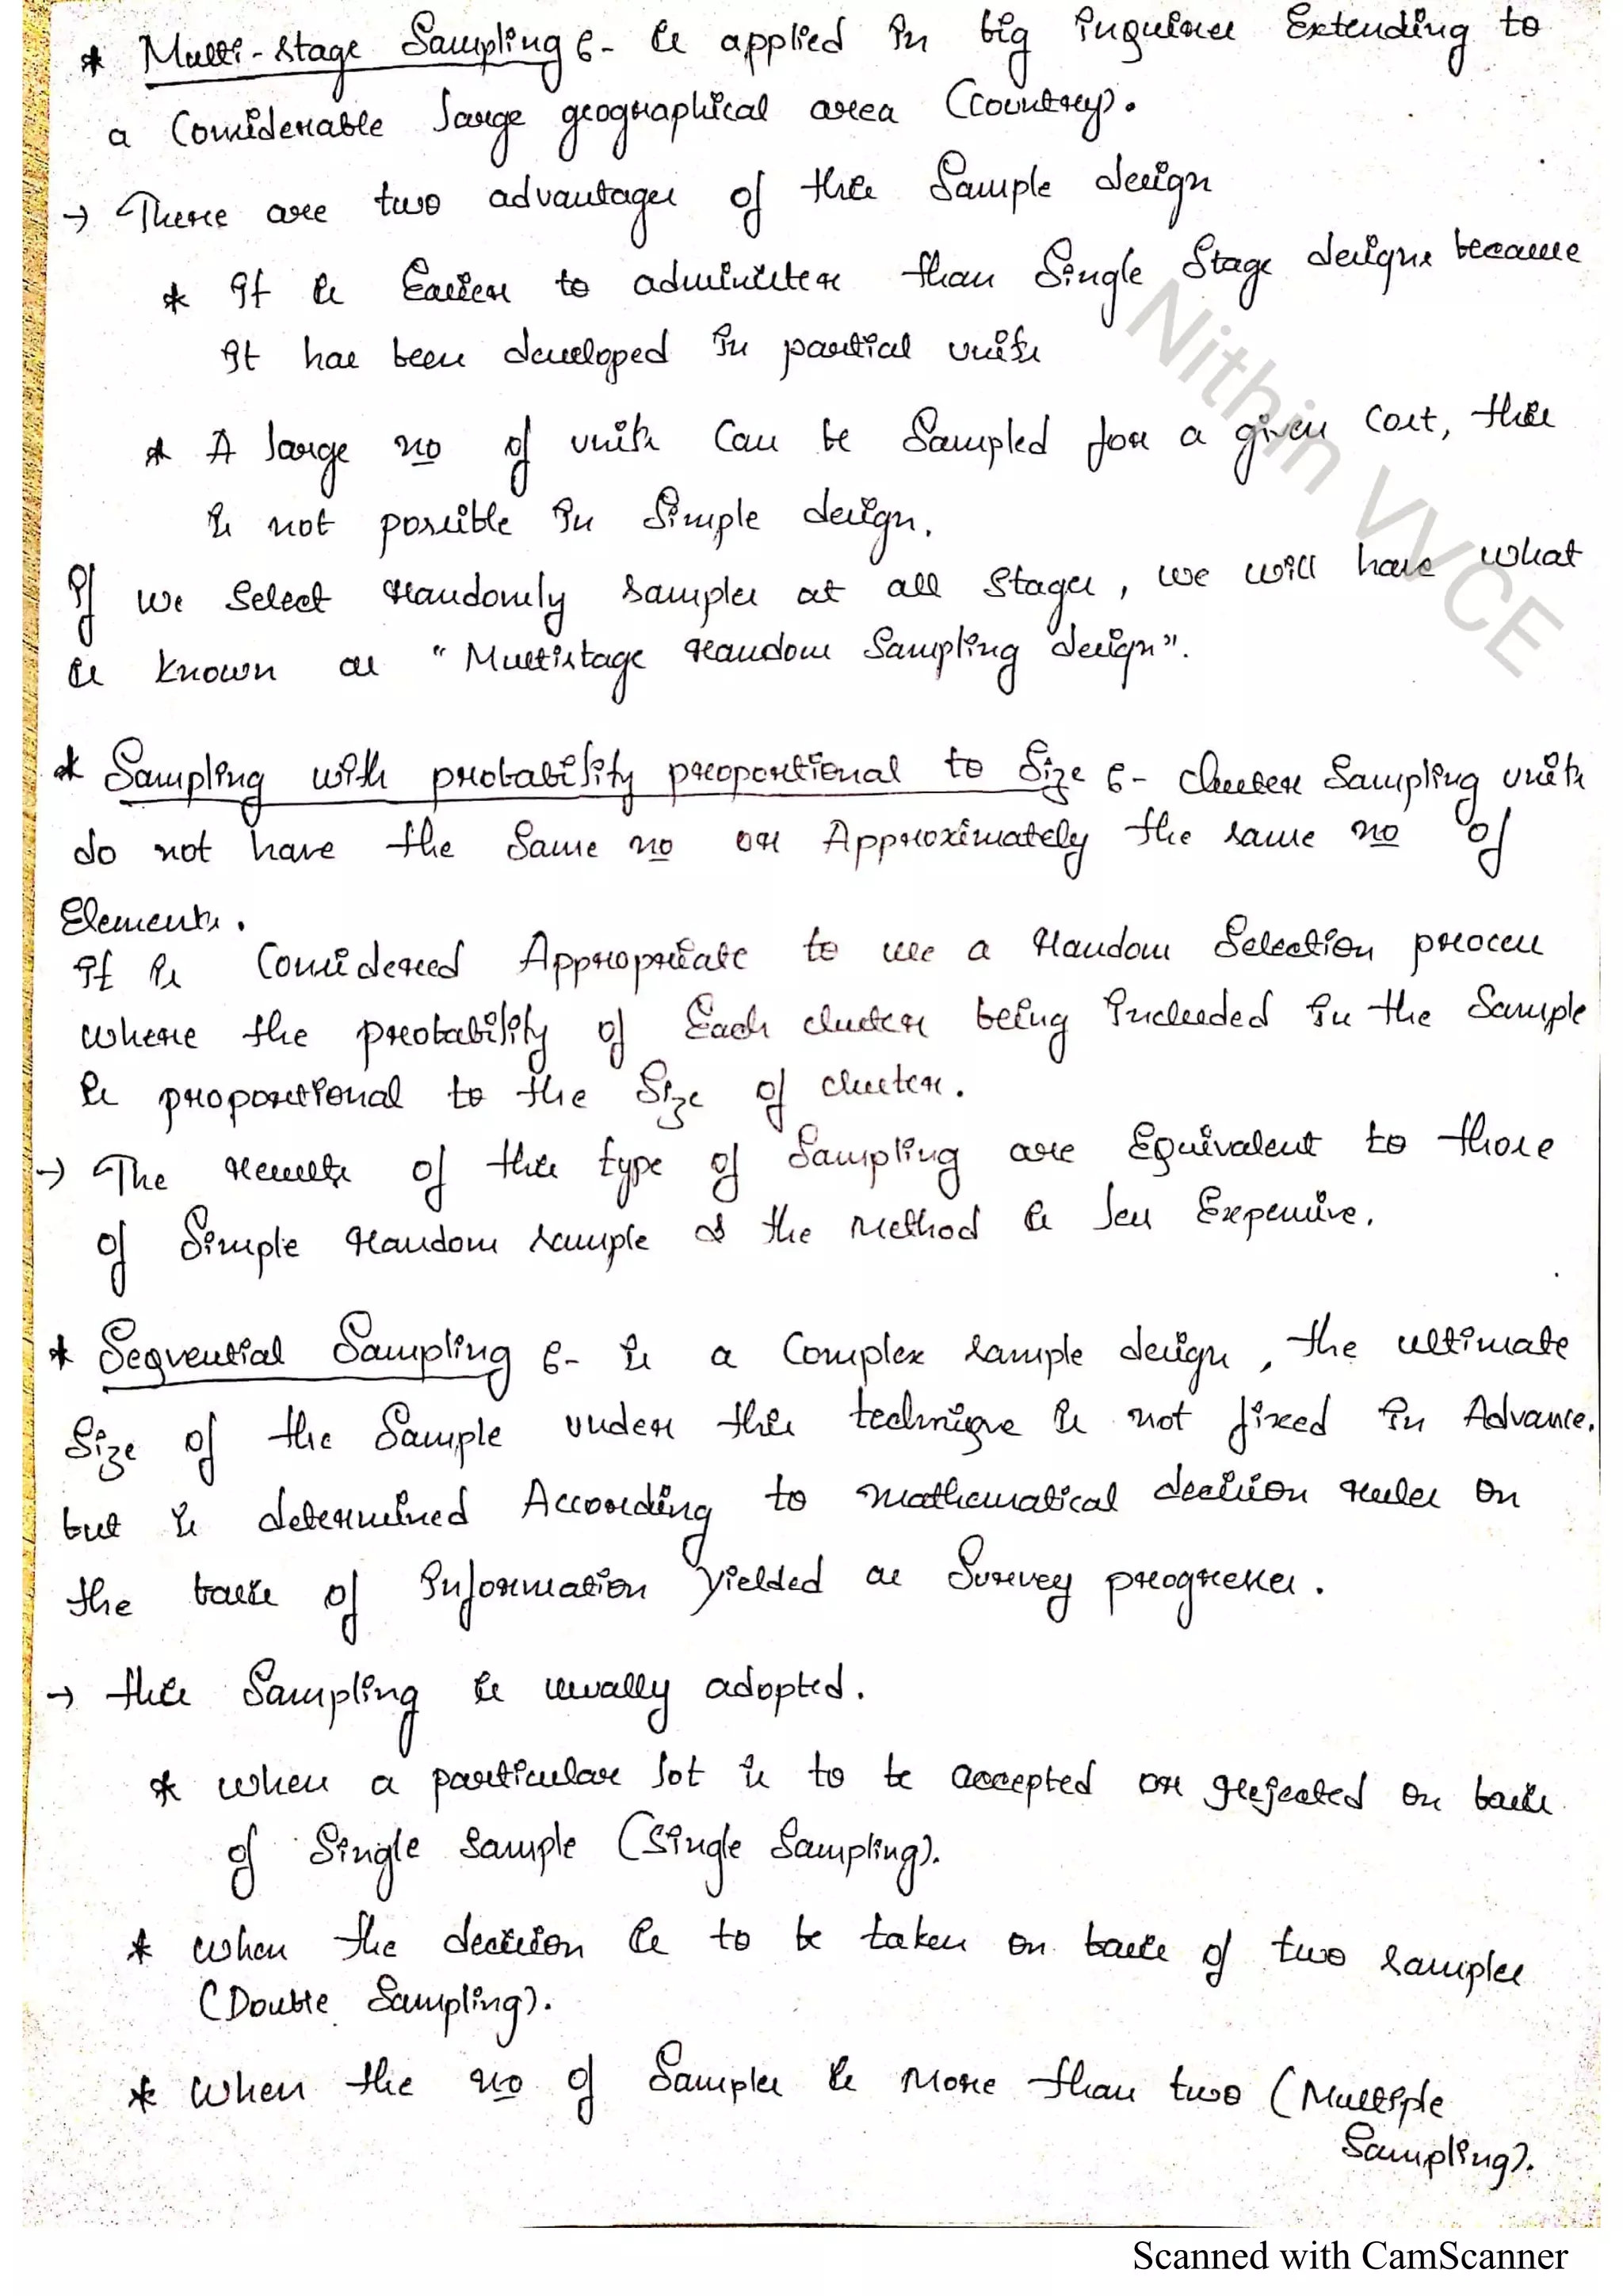 * Multi-stage Sampling :- is applied in big inquiries Extending to
a Considerable large geographical area (country).
→ There are two advantages of this Sample design
* It is Easier to administer than Single Stage designs because
It has been developed in partial units
* A large no of units Can be Sampled for a given Cost, this
is not possible in Simple design.
If we Select randomly samples at all stages, we will have what
is known as "Multistage random Sampling design".
* Sampling with probability proportional to Size :- cluster Sampling units
do not have the Same no or Approximately the same no of
Elements.
It is Considered Appropriate to use a random Selection process
where the probability of Each cluster being Included in the Sample
is proportional to the Size of cluster.
→ The results of this type of Sampling are Equivalent to those
of Simple random sample & the method is less Expensive.
* Seqvential Sampling :- is a Complex sample design, the ultimate
Size of the Sample under this techniqve is not fixed in Advance.
but is determined According to mathematical decision rules on
the basis of Information Yielded as Survey progresses.
→ this Sampling is usually adopted.
* when a particular lot is to be accepted or rejected on basis
of Single sample (Single Sampling).
* when the decision is to be taken on basis of two samples
(Double Sampling).
* When the no of Samples is More than two (Multiple
Sampling).
Nithin VVCE
Scanned with CamScanner